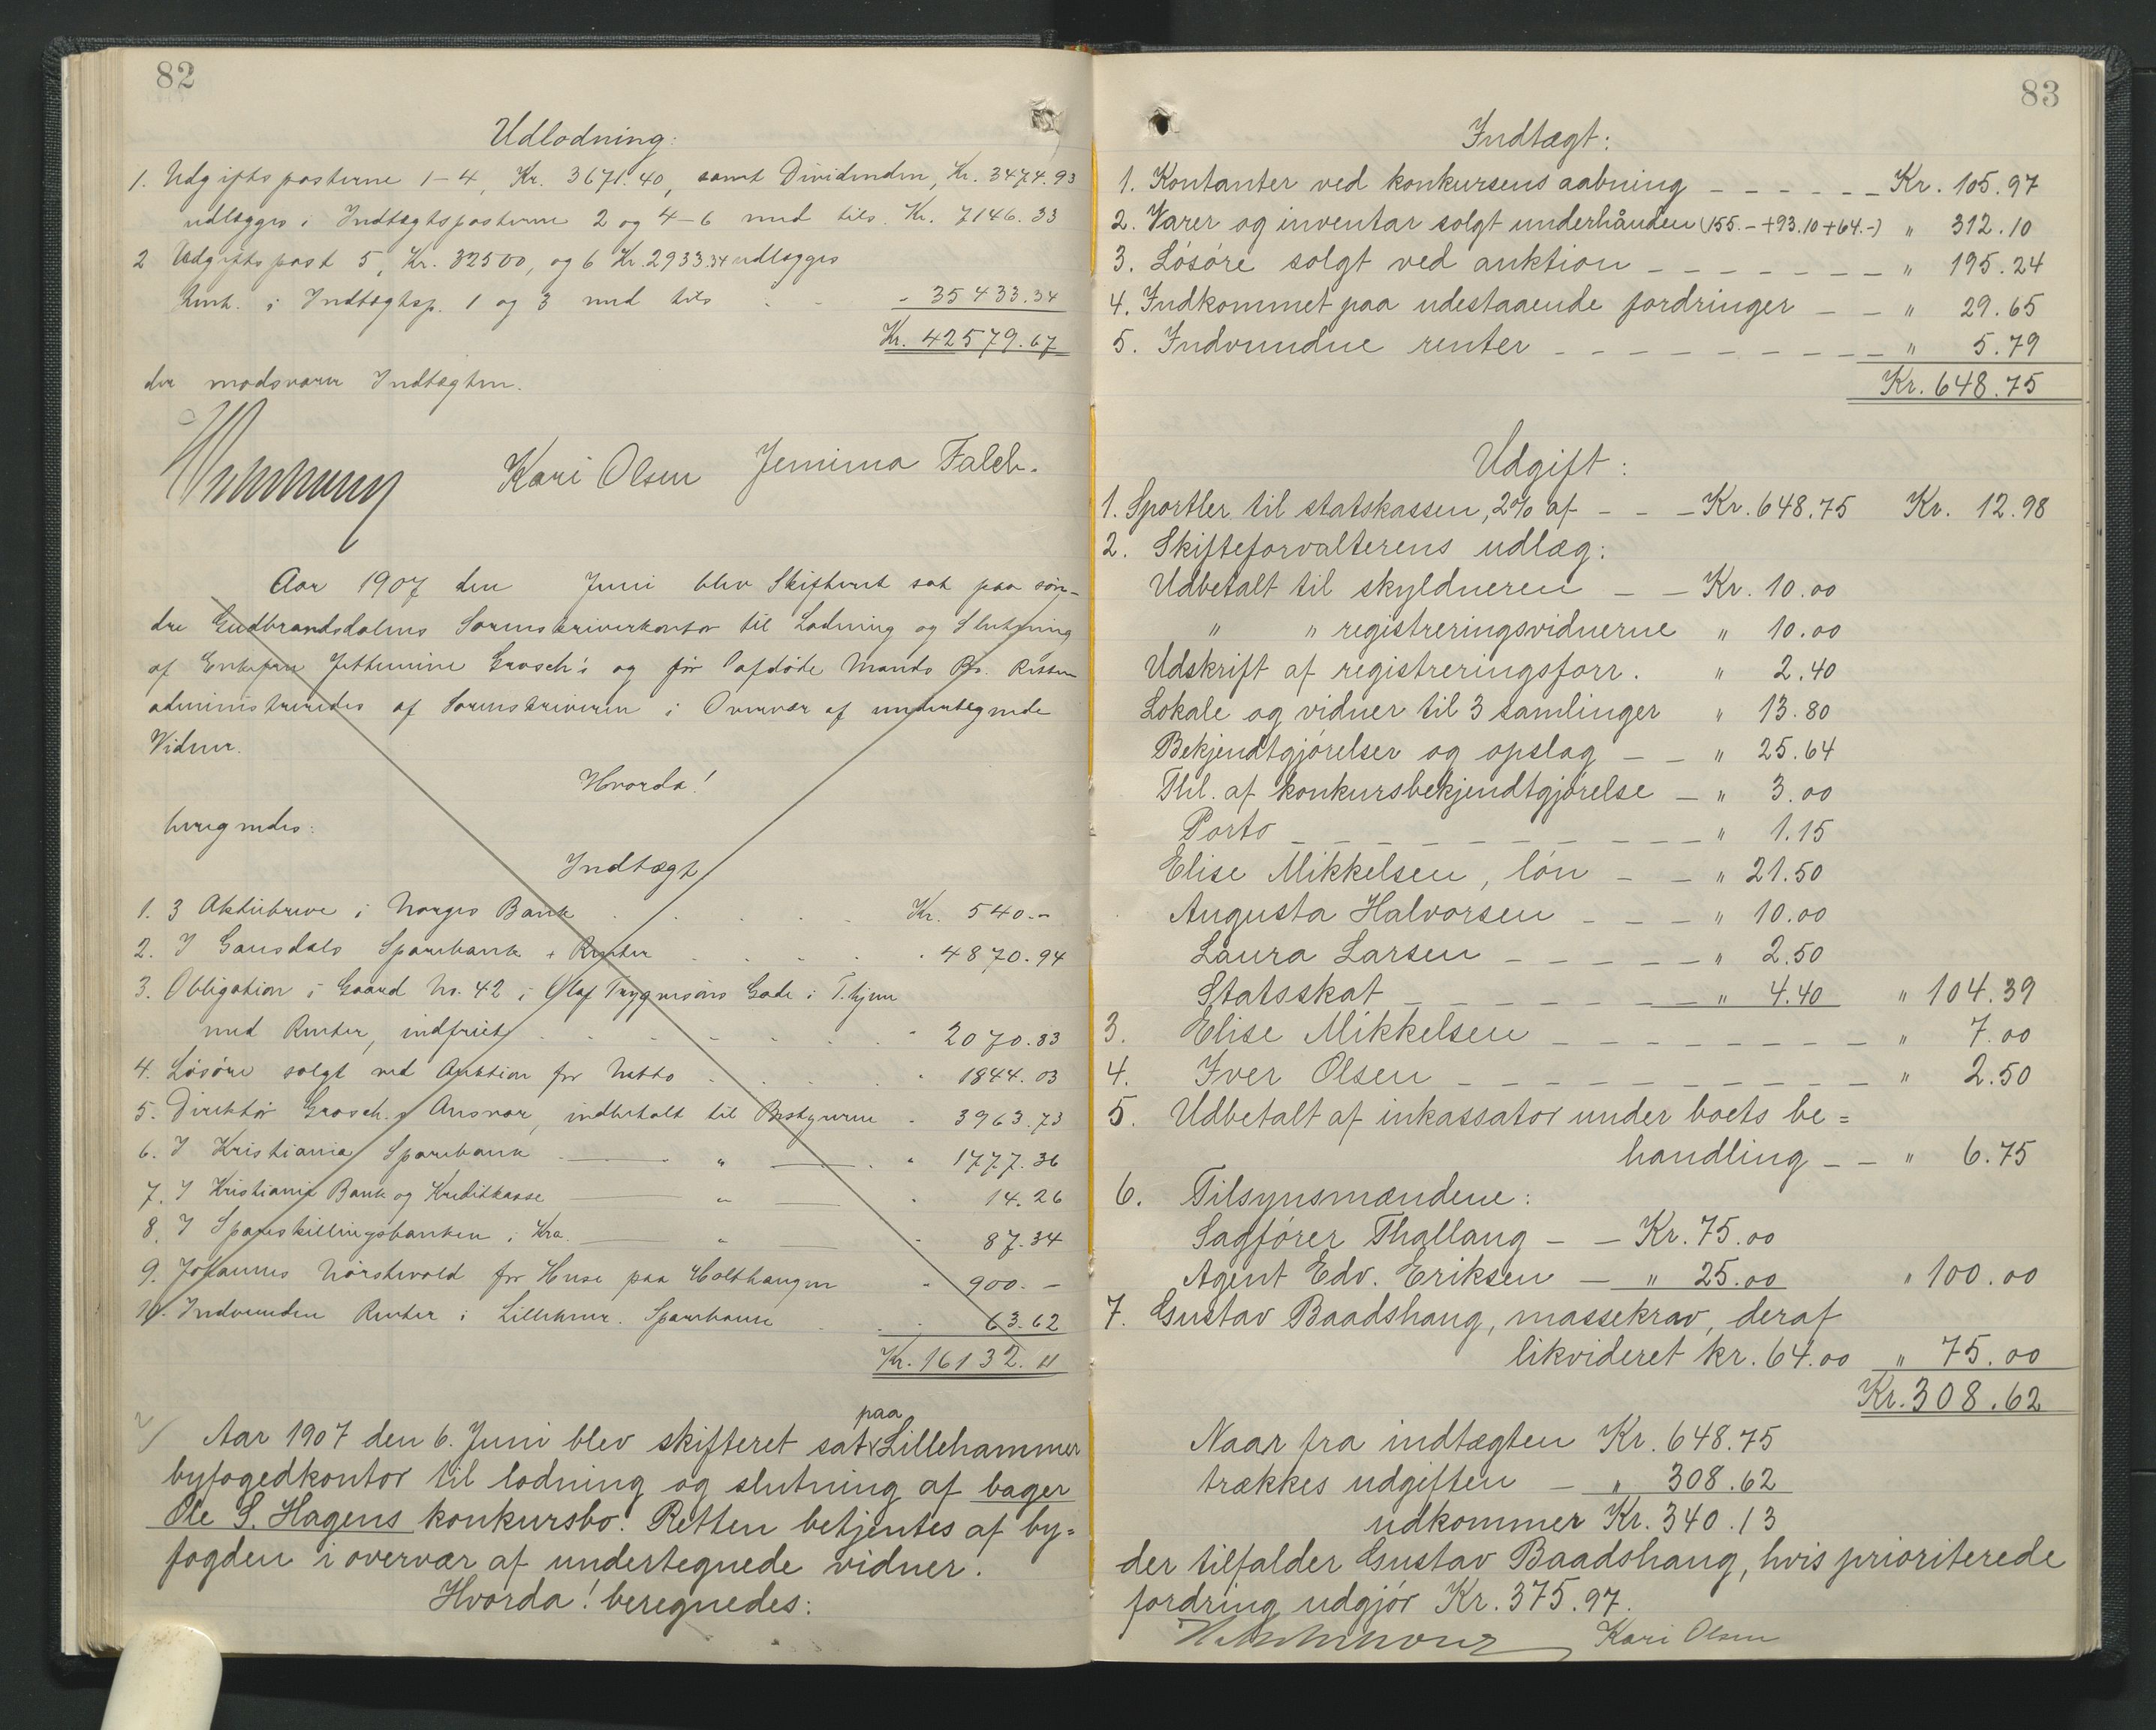 82
Udlodning:
1. Udgiftsposterne 1-4, Kr. 3671.40, samt Dividenden, Kr. 3474.93
udlægges i Indtægtsposterne 2 og 4-6 med tils. Kr. 7146.33
2 Udgiftspost 5, Kr. 32500, og 6 Kr. 2933.34 udlægges
i Indtægtsp. 1 og 3 med tils - 35433.34
Kr. 42579.67
der modsvarer Indtægten.
Kari Olsen Jemima Falch.
Aar 1907 den Juni blev Skifteret sat paa søn-
dre Gudbrandsdalens Sorenskriverkontor til Lodning og Slutning
af Enkefru Jettemine Grosch's og før afdøde Mands Bo. Retten
administreredes af Sorenskriveren i Overvær af undertegnede
Vidner.
Hvorda!
beregnedes:
Indtægt
1. 3 Aktiebreve i Norges Bank Kr. 540.-
2. I Gausdals Sparebank + Renter - 4870.94
3. Obligation i Gaard No. 42 i Olaf Trygvesøns Gade i T.hjem
med Renter, indfriet - 2070.83
4. Løsøre solgt ved Auktion for Netto - 1844.03
5. Direktør Grosch's Ansvar, indbetalt til Bestyreren - 3963.73
6. I Kristiania Sparebank — " — - 1777.36
7. I Kristiania Bank og Kreditkasse — " — - 14.26
8. I Spareskillingsbanken i Kra. — " — - 87.34
9. Johannes Nørstevold for Huse paa Holthaugen - 900.-
10. Indvunden Renter i Lillehmr. Sparebank - 63.62
Kr. 16132.11
Aar 1907 den 6. Juni blev skifteret sat paa Lillehammer
byfogedkontor til lodning og slutning af bager
Ole S. Hagens konkursbo. Retten betjentes af by=
fogden i overvær af undertegnede vidner.
Hvorda! beregnedes:
83
Indtægt:
1. Kontanter ved konkursens aabning - - - - - - Kr. 105.97
2. Varer og inventar solgt underhånden (155.- + 93.10 + 64.-) " 312.10
3. Løsøre solgt ved auktion - - - - - - - " 195.24
4. Indkommet paa udestaaende fordringer - - " 29.65
5. Indvundne renter - - - - - - - - - " 5.79
Kr. 648.75
Udgift:
1. Sportler til statskassen, 2% af - - - Kr. 648.75 Kr. 12.98
2. Skifteforvalterens udlæg:
Udbetalt til skyldneren - - Kr. 10.00
" " registreringsvidnerne " 10.00
Udskrift af registreringsforr. " 2.40
Lokale og vidner til 3 samlinger " 13.80
Bekjendtgjørelser og opslag - - " 25.64
Thl. af konkursbekjendtgjørelse - " 3.00
Porto - - - - - - - - - - " 1.15
Elise Mikkelsen, løn - - " 21.50
Augusta Halvorsen - - - " 10.00
Laura Larsen - - - - - " 2.50
Statsskat - - - - - - - " 4.40 " 104.39
3. Elise Mikkelsen - - - - - - - - - " 7.00
4. Iver Olsen - - - - - - - - - - - " 2.50
5. Udbetalt af inkassator under boets be=
handling - - " 6.75
6. Tilsynsmændene:
Sagfører Thallaug - - Kr. 75.00
Agent Edv. Eriksen - " 25.00 " 100.00
7. Gustav Baadshaug, massekrav, deraf
likvideret kr. 64.00 " 75.00
Kr. 308.62
Naar fra indtægten Kr. 648.75
trækkes udgiften - " 308.62
udkommer Kr. 340.13
der tilfalder Gustav Baadshaug, hvis prioriterede
fordring udgjør Kr. 375.97.
Kari Olsen